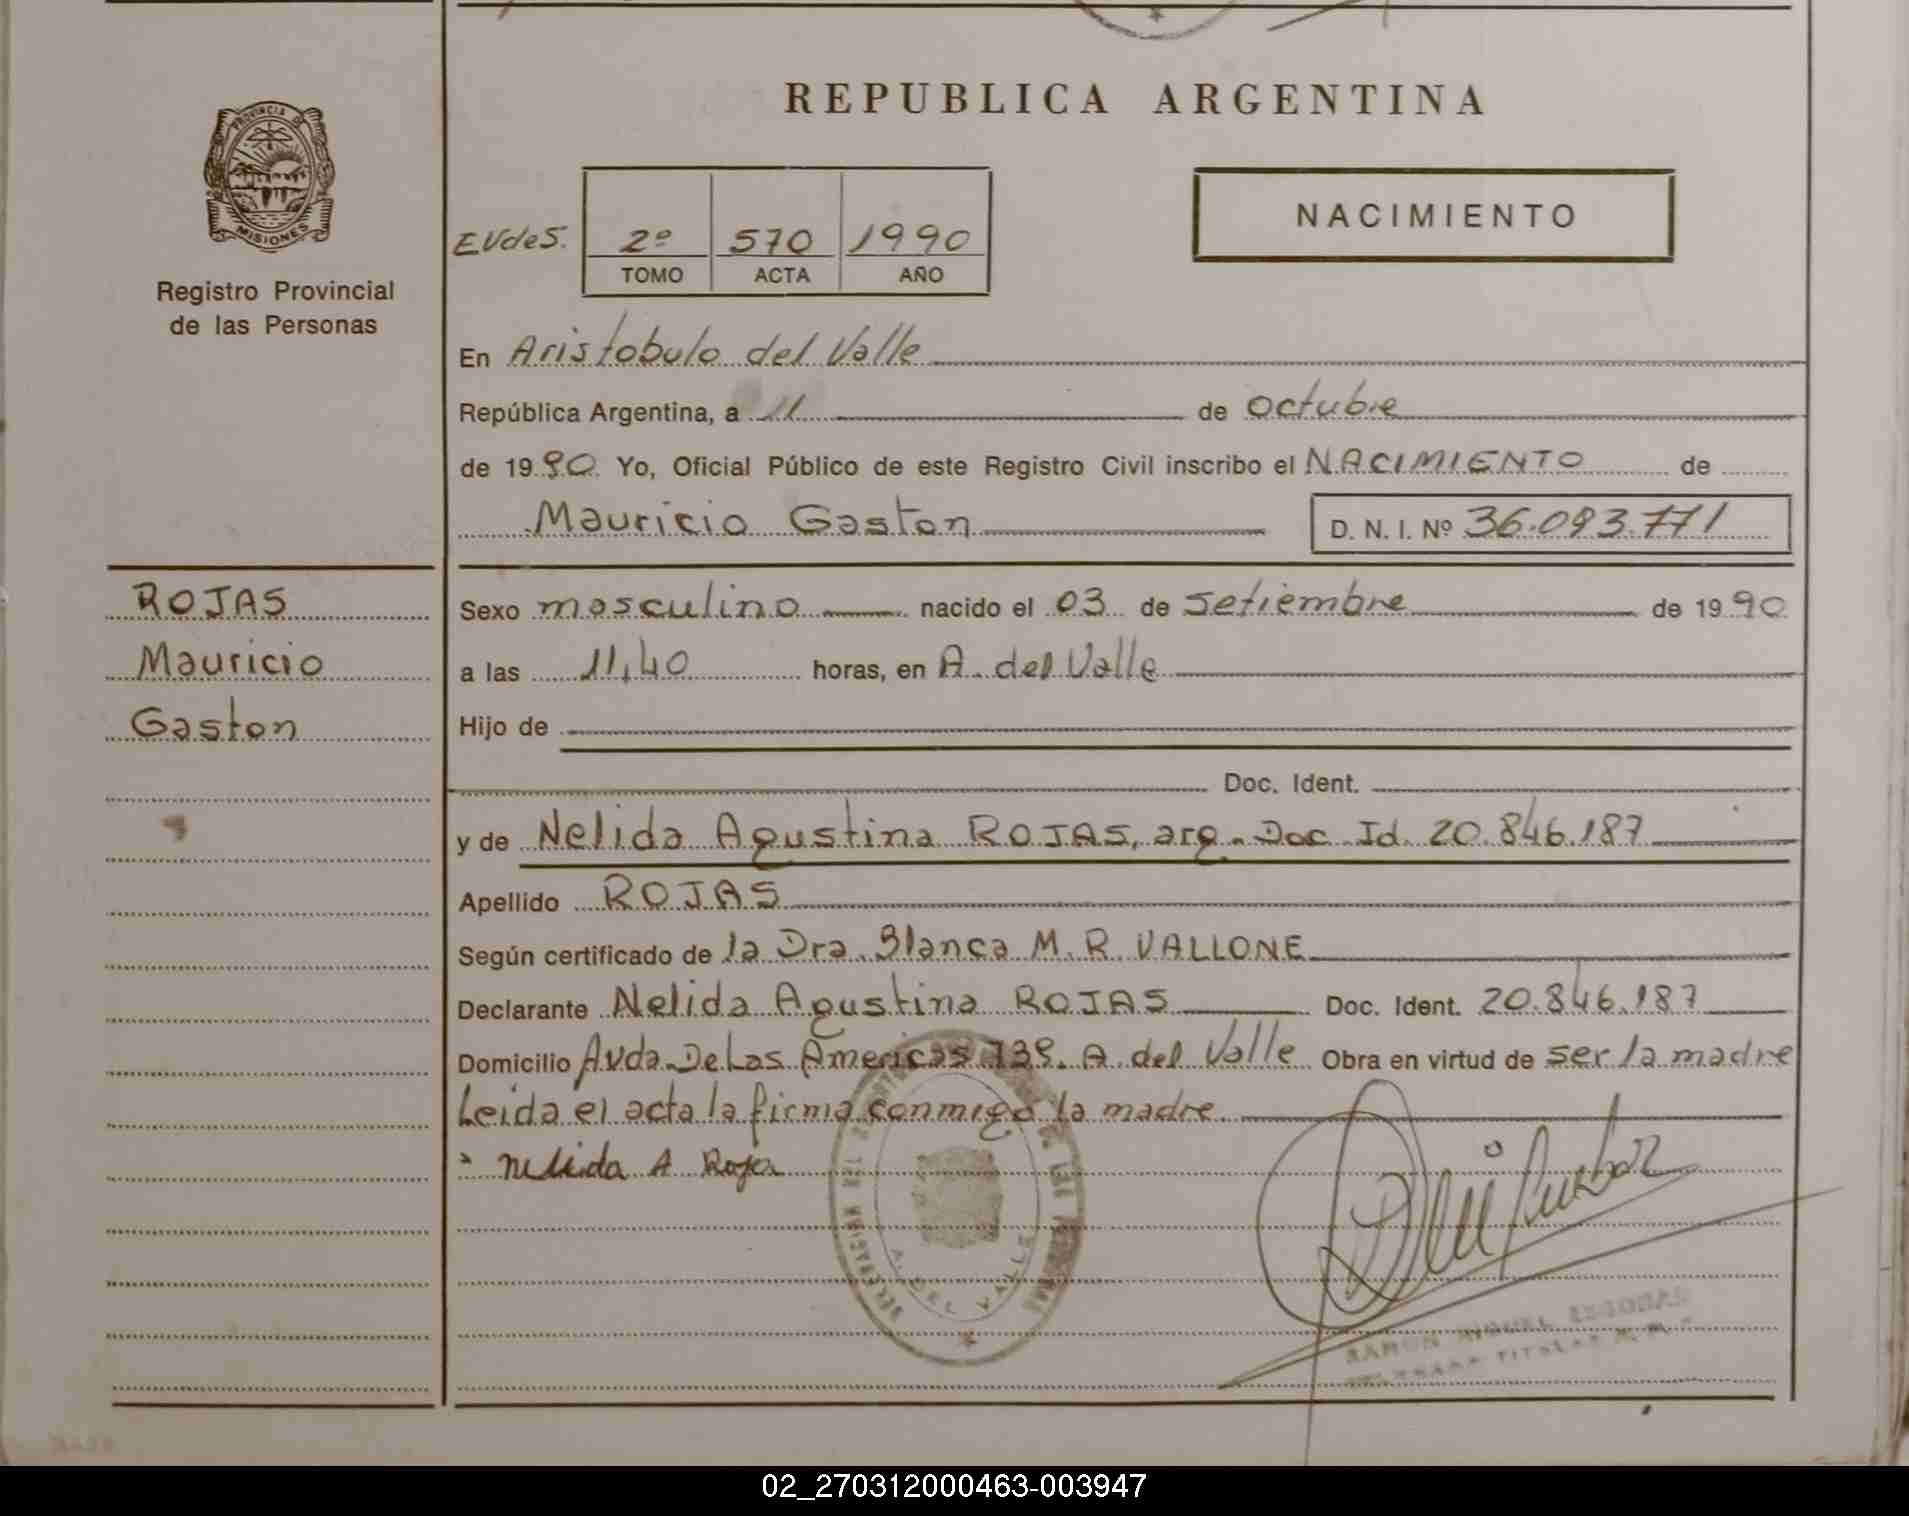 REPUBLICA ARGENTINA
PROVINCIA DE
MISIONES
Registro Provincial
de las Personas
EVdeS. 2º 570 1990
TOMO ACTA AÑO
NACIMIENTO
En Aristobulo del Valle
República Argentina, a 11 de octubre
de 19 90 Yo, Oficial Público de este Registro Civil inscribo el NACIMIENTO de
Mauricio Gaston D. N. I. Nº 36.093.771
ROJAS
Mauricio
Gaston
Sexo masculino nacido el 03 de Setiembre de 19 90
a las 11,40 horas, en A. del Valle
Hijo de
Doc. Ident.
y de Nelida Agustina ROJAS, arg. Doc Id. 20.846.187
Apellido ROJAS
Según certificado de la Dra. Blanca M. R. VALLONE
Declarante Nelida Agustina ROJAS Doc. Ident. 20.846.187
Domicilio Avda. De Las Americas 139. A. del Valle Obra en virtud de ser la madre
Leida el acta la firma conmigo la madre
Nelida A Rojas
DELEGACION
A. DEL VALLE
RAMON MIGUEL
TITULAR
02_270312000463-003947